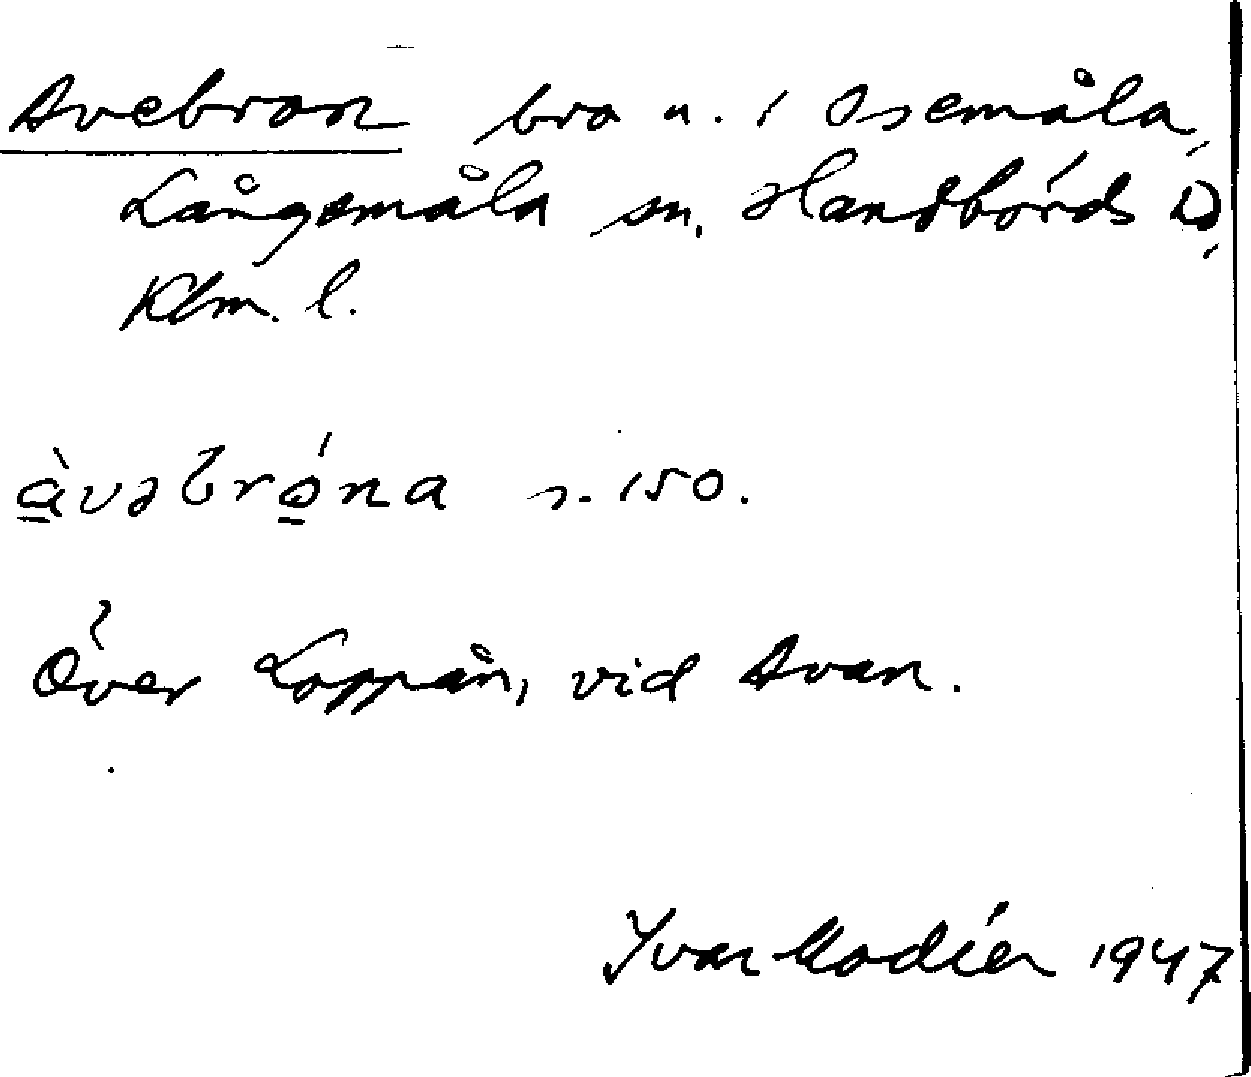 Avebron bro u. i Åsemåla,
Långemåla sn, Handbörds hd,
Klm. l.
àvəbróna s. 150.
Över Loppån, vid Avan.
Ivar Modéer 1947